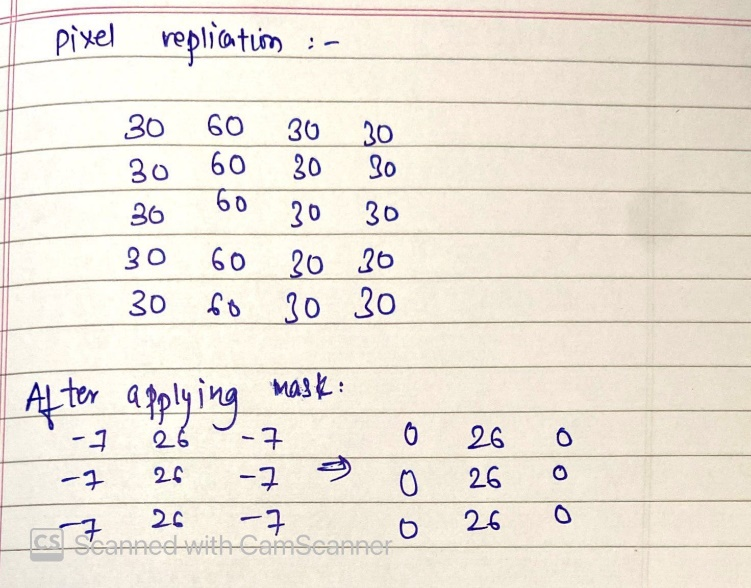 pixel replication :-
30 60 30 30
30 60 30 30
30 60 30 30
30 60 30 30
30 60 30 30
After applying mask:
-7 26 -7 0 26 0
-7 26 -7 ⇒ 0 26 0
-7 26 -7 0 26 0
CS Scanned with CamScanner